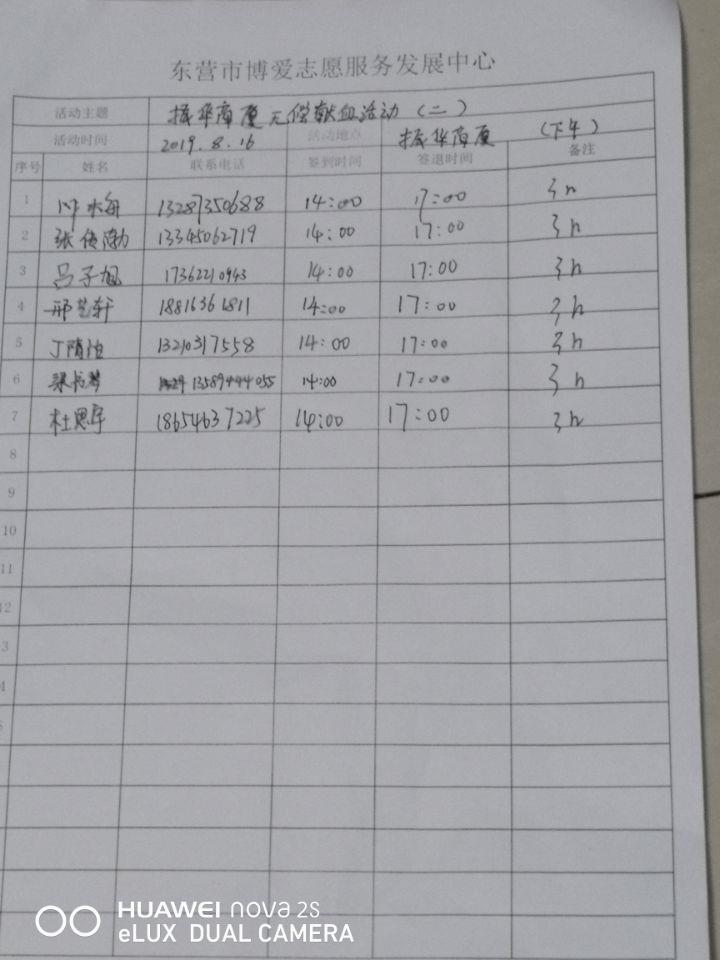 东营市博爱志愿服务发展中心
活动主题 振华商厦无偿献血活动（二）
活动时间 2019.8.16 活动地点 振华商厦 （下午）
序号 姓名 联系电话 签到时间 签退时间 备注
1 13287350688 14:00 17:00 3h
2 张传渤 13345062719 14:00 17:00 3h
3 吕子旭 17362210943 14:00 17:00 3h
4 邢艺轩 18816361811 14:00 17:00 3h
5 13210317558 14:00 17:00 3h
6 13589444055 14:00 17:00 3h
7 杜思宇 18654637225 14:00 17:00 3h
8
9
10
11
12
3
4
5
HUAWEI nova 2s
eLUX DUAL CAMERA